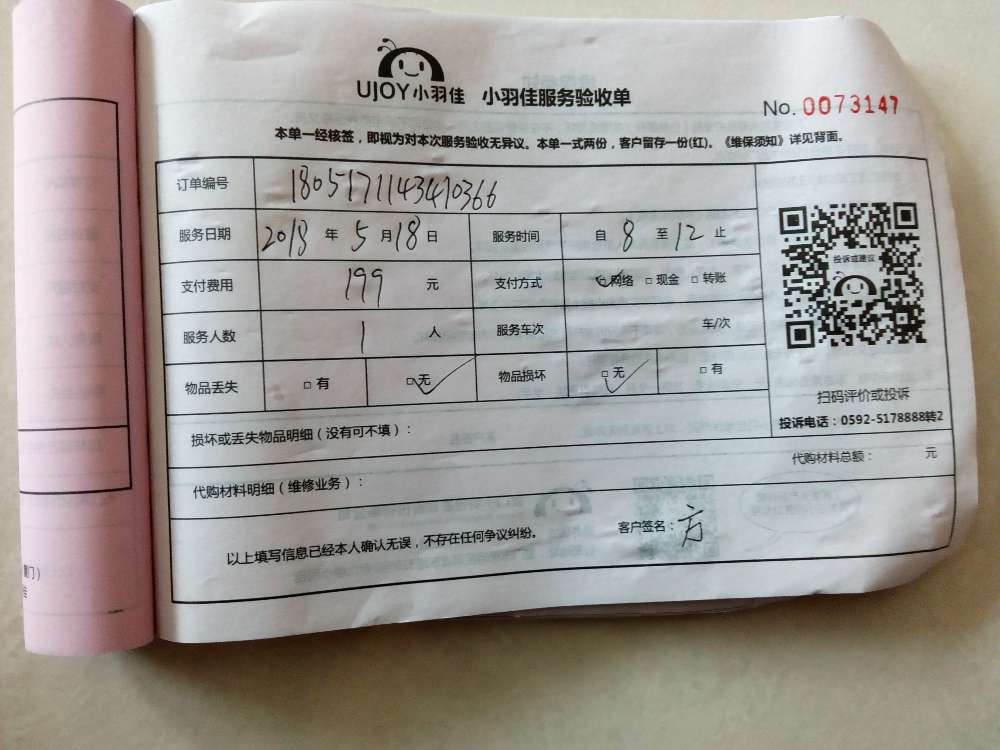 UJOY小羽佳 小羽佳服务验收单
No. 0073147
本单一经核签，即视为对本次服务验收无异议。本单一式两份，客户留存一份(红)。《维保须知》详见背面。
订单编号 1805171143470366
服务日期 2018 年 5 月 18 日 服务时间 自 8 至 12 止
支付费用 199 元 支付方式 □网络 □现金 □转账
服务人数 1 人 服务车次 车/次
物品丢失 □有 □无 物品损坏 □无 □有
投诉或建议
扫码评价或投诉
投诉电话：0592-5178888转2
损坏或丢失物品明细（没有可不填）：
代购材料明细（维修业务）： 代购材料总额： 元
以上填写信息已经本人确认无误，不存在任何争议纠纷。 客户签名：方